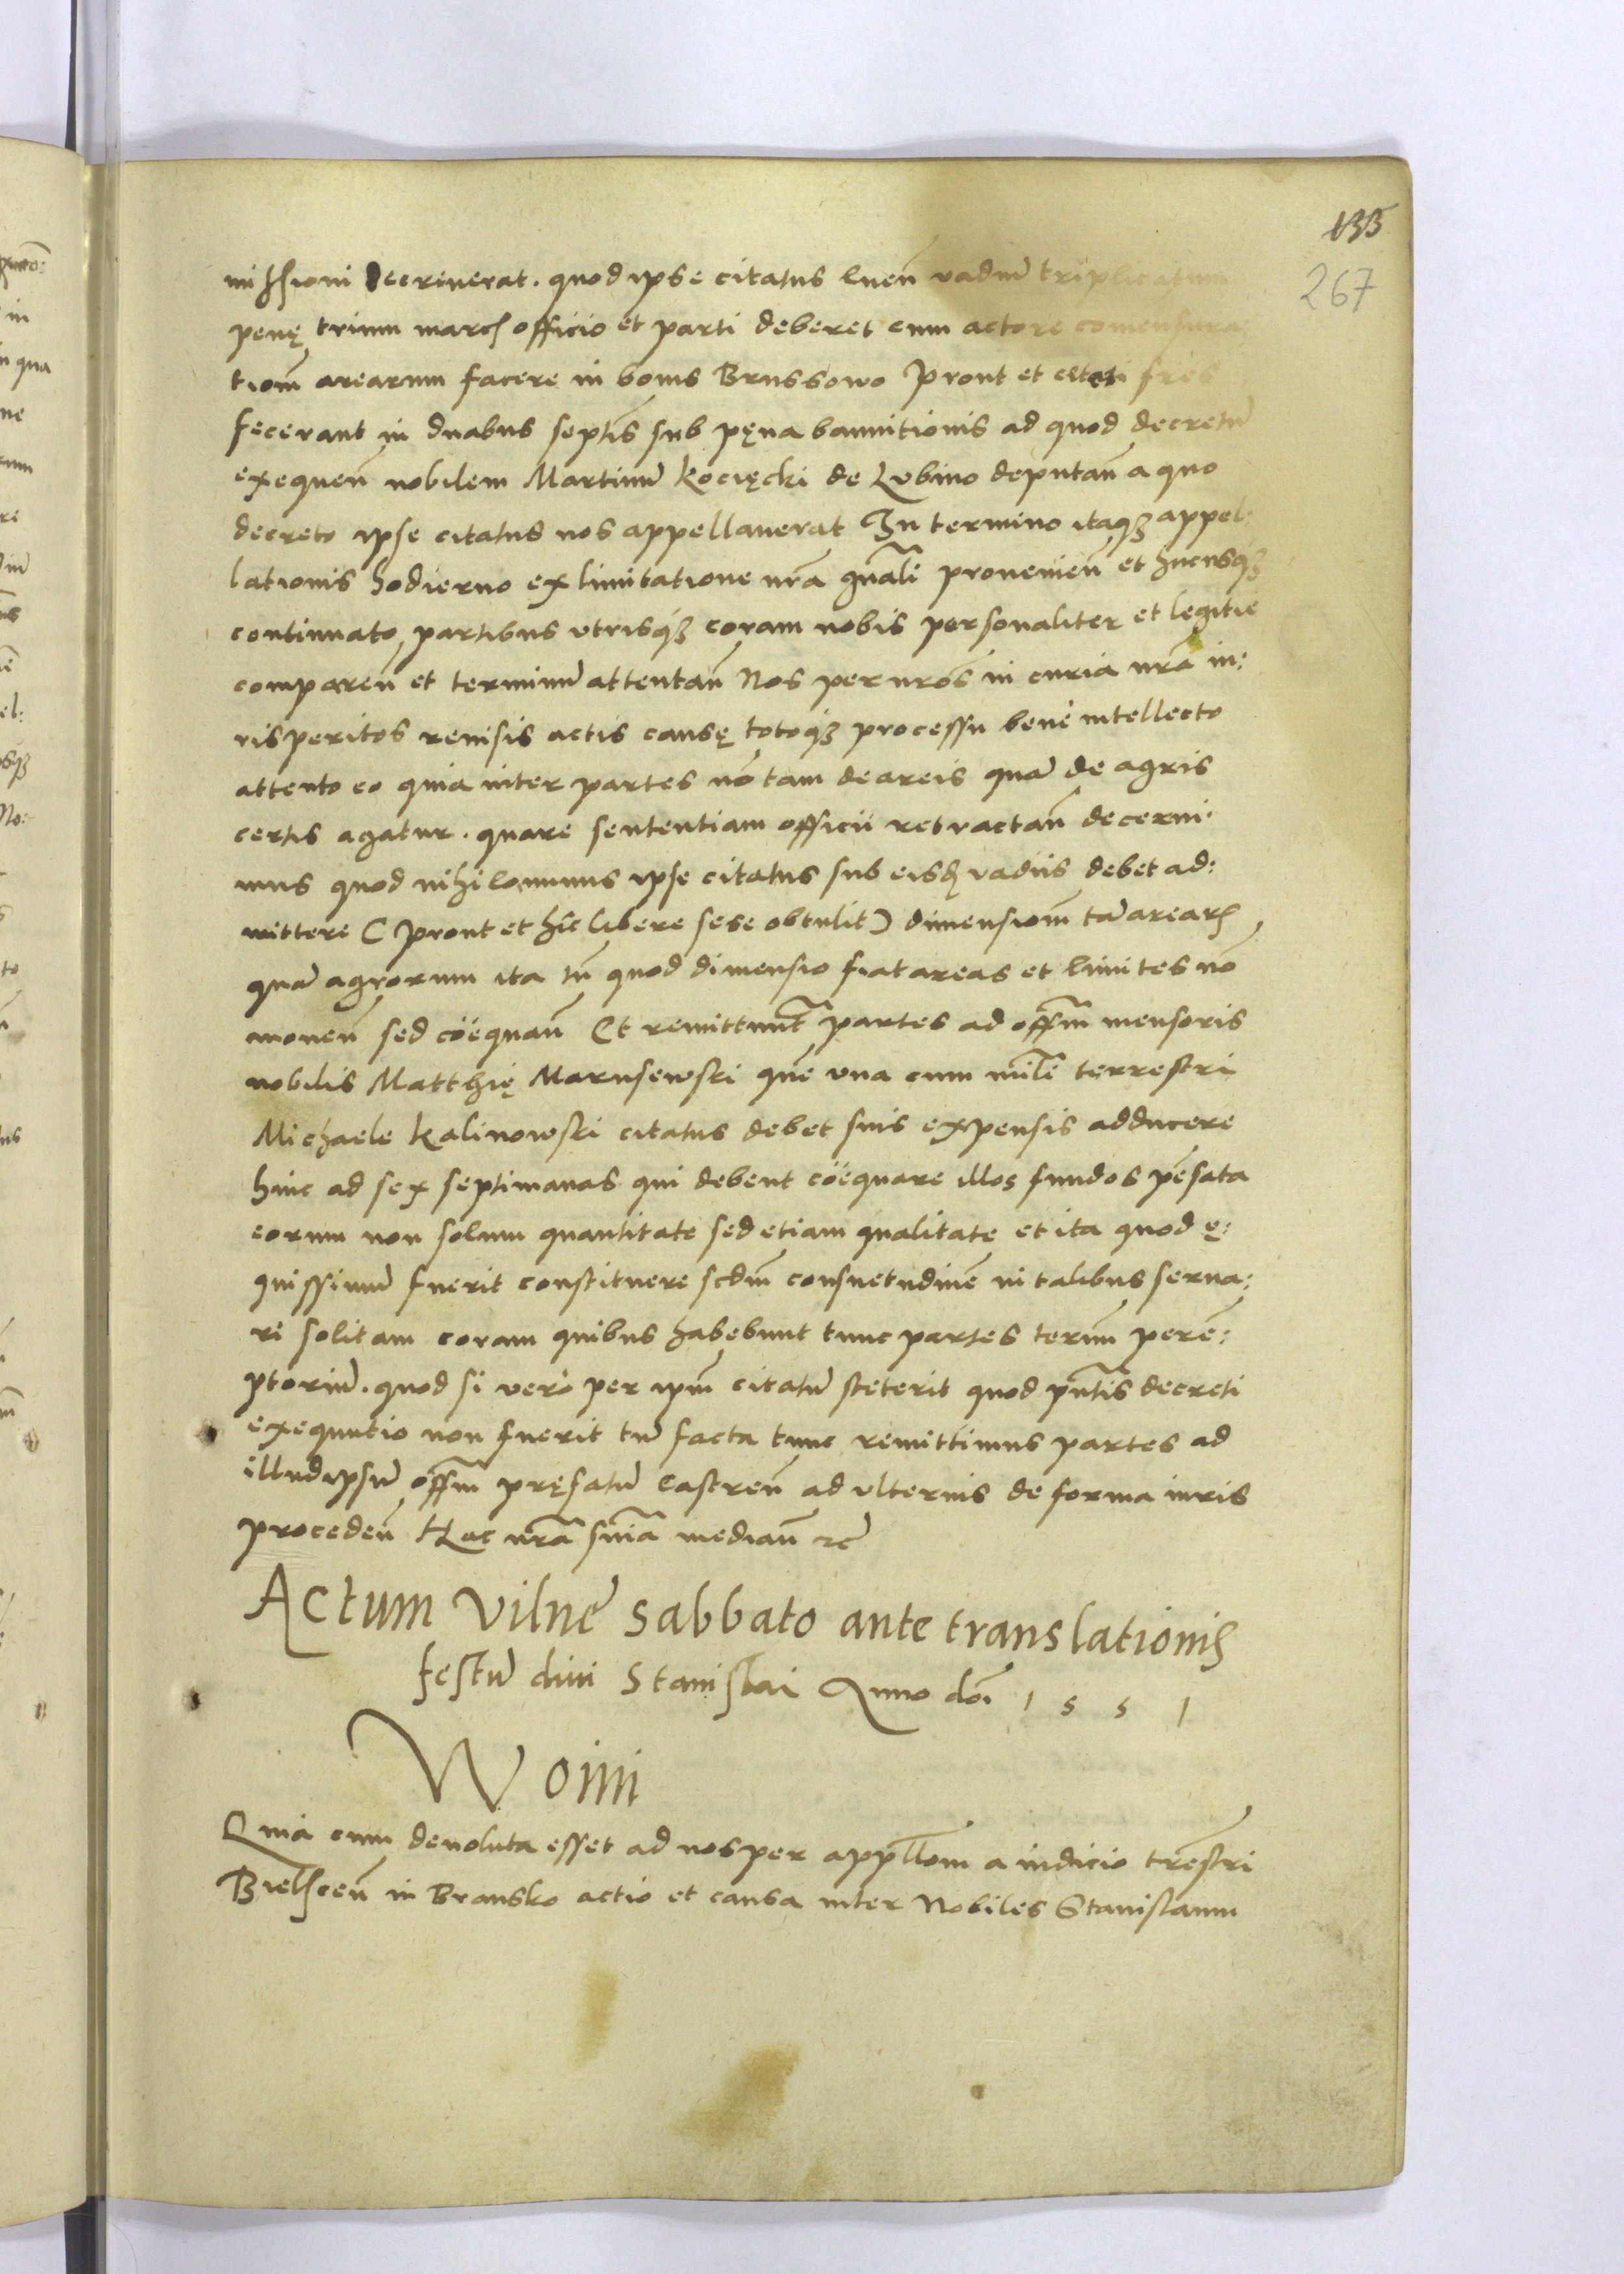 133
267
missioni decreuerat. quod ipse citatus luen̄ vadiū triplicatum
penę trium marcs officio et parti deberet cum actore comensura
tiom̄ arearum facere in bonis Brussowo prout et ceteri fr̄es
fecerant in duabus septīs sub pęna bannitionis ad quod decretū
exequen̄ nobilem Martinū Kocięcki de Lubino deputan̄ a quo
decreto ipse citatus nos appellauerat In termino itaq3 appel:
lationis hodierno ex limitatione nr̄a gn̄ali prouenien̄ et hucusq3
continuato, partibus vtrisq3 coram nobis personaliter et legitīe
comparen̄ et terminū attentan̄ Nos per nr̄os in curia nr̄a iu:
risperitos reuisis actis causę totoq3 processu bene intellecto
attento eo quia inter partes nō tam de areis quā de agris
certis agatur. quare sententiam officii retractan̄ decerni:
mus quod nihilominus ipse citatus sub eisd vadiis debet ad:
mittere (prout et hīc libere sese obtulit) dimensiom̄ tā arears
quā agrorum ita tn̄ quod dimensio fiat areas et limites nō
mouen̄ sed cöequan̄ Et remittunt̄ partes ad offm̄ mensoris
nobilis Matthię Marusewski quē vna cum mīle terrestri
Michaele Kalinowski citatus debet suis expensis adducere
hinc ad sex septimanas qui debent cöequare illos fundos pēsata
eorum non solum quantitate sed etiam qualitate et ita quod ę:
quissimū fuerit constituere scdm̄ consuetudinē in talibus serua:
ri solitam coram quibus habebunt tunc partes termī perē:
ptoriū. quod si verò per ipm̄ citatū steterit quod pn̄tis decreti
exequutio non fuerit tū facta tunc remittimus partes ad
illud ipsū offm̄ pręfatū castren̄ ad vlterius de forma iuris
proceden̄ Hac nr̄a sn̄ia median̄ rc̄
Actum Vilnę Sabbato ante translationis
festū diui Stanislai Anno doī 1 5 5 1
Woini
Quia cum deuoluta esset ad nos per appllom̄ a iudicio tr̄estri
Bielscen̄ in Bransko actio et causa inter Nobiles Stanislaum